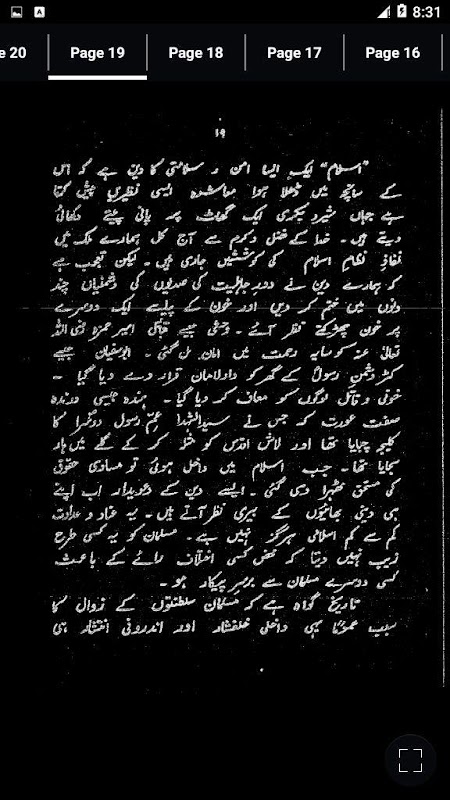 8:31
e 20 Page 19 Page 18 Page 17 Page 16
۱۹
"اسلام" ایک ایسا امن و سلامتی کا دین ہے کہ اس
کے سانچے میں ڈھلا ہوا معاشرہ ایسی نظیریں پیش کرتا
ہے جہاں شیر و بکری ایک گھاٹ پر پانی پیتے دکھائی
دیتے ہیں۔ خدا کے فضل و کرم سے آج کل ہمارے ملک میں
نفاذِ نظامِ اسلام کی کوششیں جاری ہیں۔ لیکن تعجب ہے
کہ ہمارے دین نے دورِ جاہلیت کی صدیوں کی دشمنیاں چند
دنوں میں ختم کر دیں اور خون کے پیاسے ایک دوسرے
پر خون چھڑکتے نظر آئے۔ وحشی جیسے قاتل امیر حمزہ رضی اللہ
تعالیٰ عنہ کو سایہ رحمت میں امان مل گئی۔ ابوسفیان جیسے
کٹر دشمنِ رسول کے گھر کو دارالامان قرار دے دیا گیا۔
خونی و قاتل لوگوں کو معاف کر دیا گیا۔ ہندہ جیسی درندہ
صفت عورت کہ جس نے سیدالشہدا عمِ رسول کا
کلیجہ چبایا تھا اور لاش اقدس کو کر کے گلے میں ہار
سجایا تھا۔ جب اسلام میں داخل ہوئی تو مساوی حقوق
کی مستحق ٹھہرا دی گئی۔ ایسے دین کے دعویدار اب اپنے
ہی دینی بھائیوں کے بیری نظر آتے ہیں۔ یہ عناد و عداوت
کم سے کم اسلامی ہرگز نہیں ہے۔ مسلمان کو یہ کسی طرح
زیب نہیں دیتا کہ محض کسی اختلاف رائے کے باعث
کسی دوسرے مسلمان سے برسرِ پیکار ہو۔
تاریخ گواہ ہے کہ مسلمان سلطنتوں کے زوال کا
سبب عموماً یہی داخلی خلفشار اور اندرونی انتشار ہی